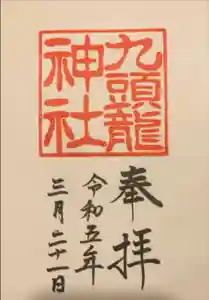 九頭龍
神社
奉拝
令和五年
三月二十一日